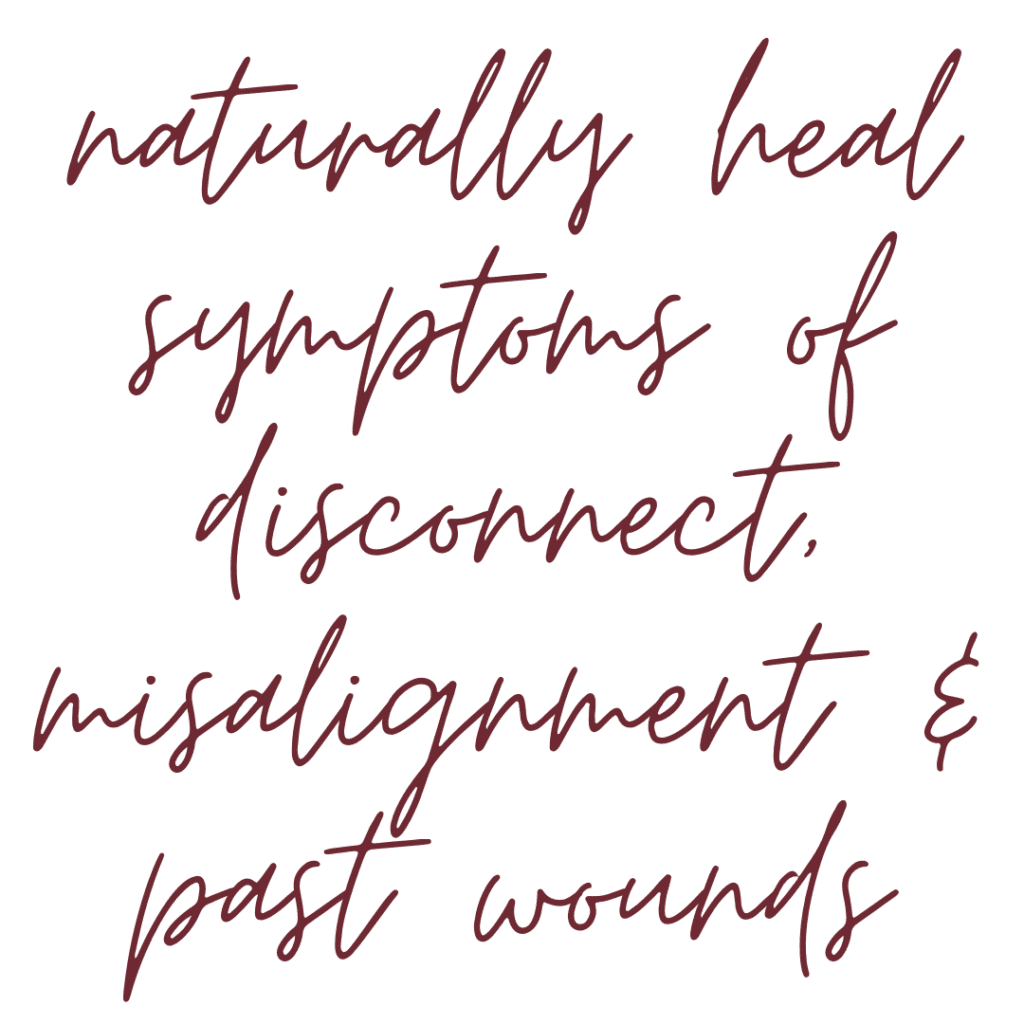 naturally heal
symptoms of
disconnect,
misalignment &
past wounds